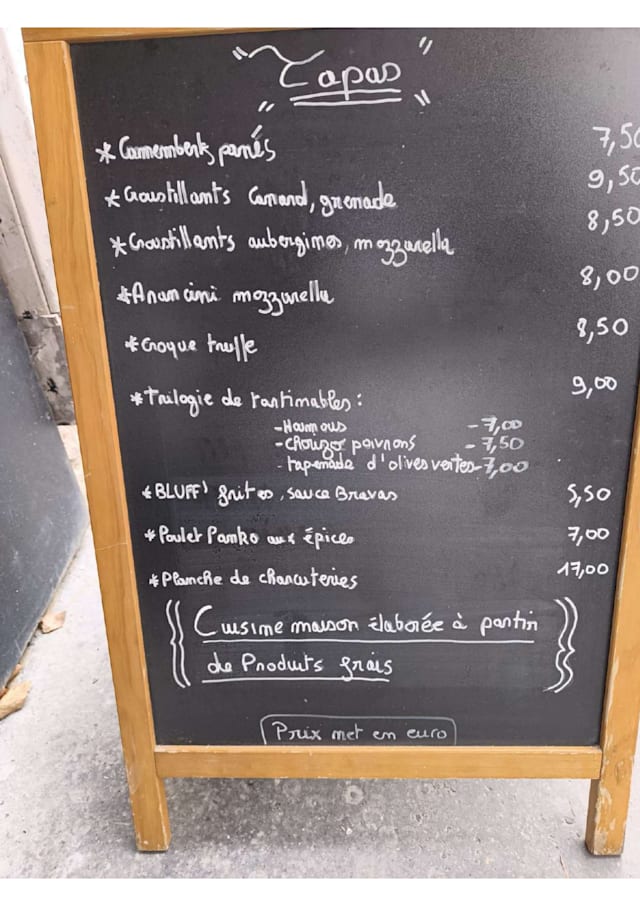 " Tapas "
* Camemberts panés 7,50
* Croustillants Canard, grenade 9,50
* Croustillants aubergines, mozzarella 8,50
* Arancini mozzarella 8,00
* Croque truffe 8,50
* Trilogie de tartinables : 9,00
- Houmous - 7,00
- chorizo poivrons - 7,50
- tapenade d'olives vertes - 7,00
* BLUFF' frites, sauce Bravas 5,50
* Poulet Panko aux épices 7,00
* Planche de charcuteries 17,00
Cuisine maison élaborée à partir
de Produits frais
Prix net en euro